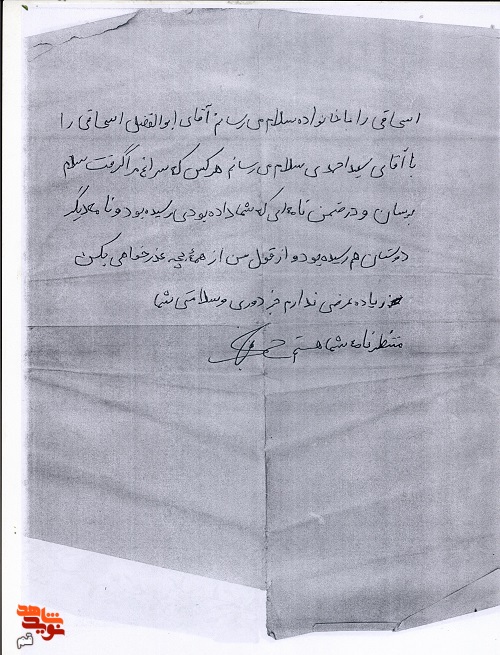 اسحاقی را با خانواده سلام می رسانم آقای ابوالفضل اسحاقی را
با آقای سید احمدی سلام می رسانم هر کس که سراغ مرا گرفت سلام
برسان و در ضمن نامه ای که شما داده بودی رسیده بود و نامه دیگر
دوستان هم رسیده بود و از قول من از همۀ بچه عذرخواهی بکن
زیاده عرضی ندارم جز دوری و سلامتی شما
منتظر نامه شما هستم
نوید شاهد
قم